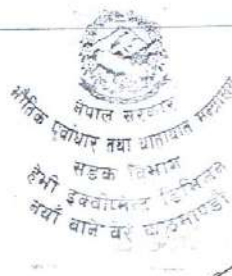 नेपाल सरकार
भौतिक पूर्वाधार तथा यातायात मन्त्रालय
सडक विभाग
हेभी इक्वीपमेन्ट डिभिजन
नयाँ बानेश्वर काठमाण्डौ